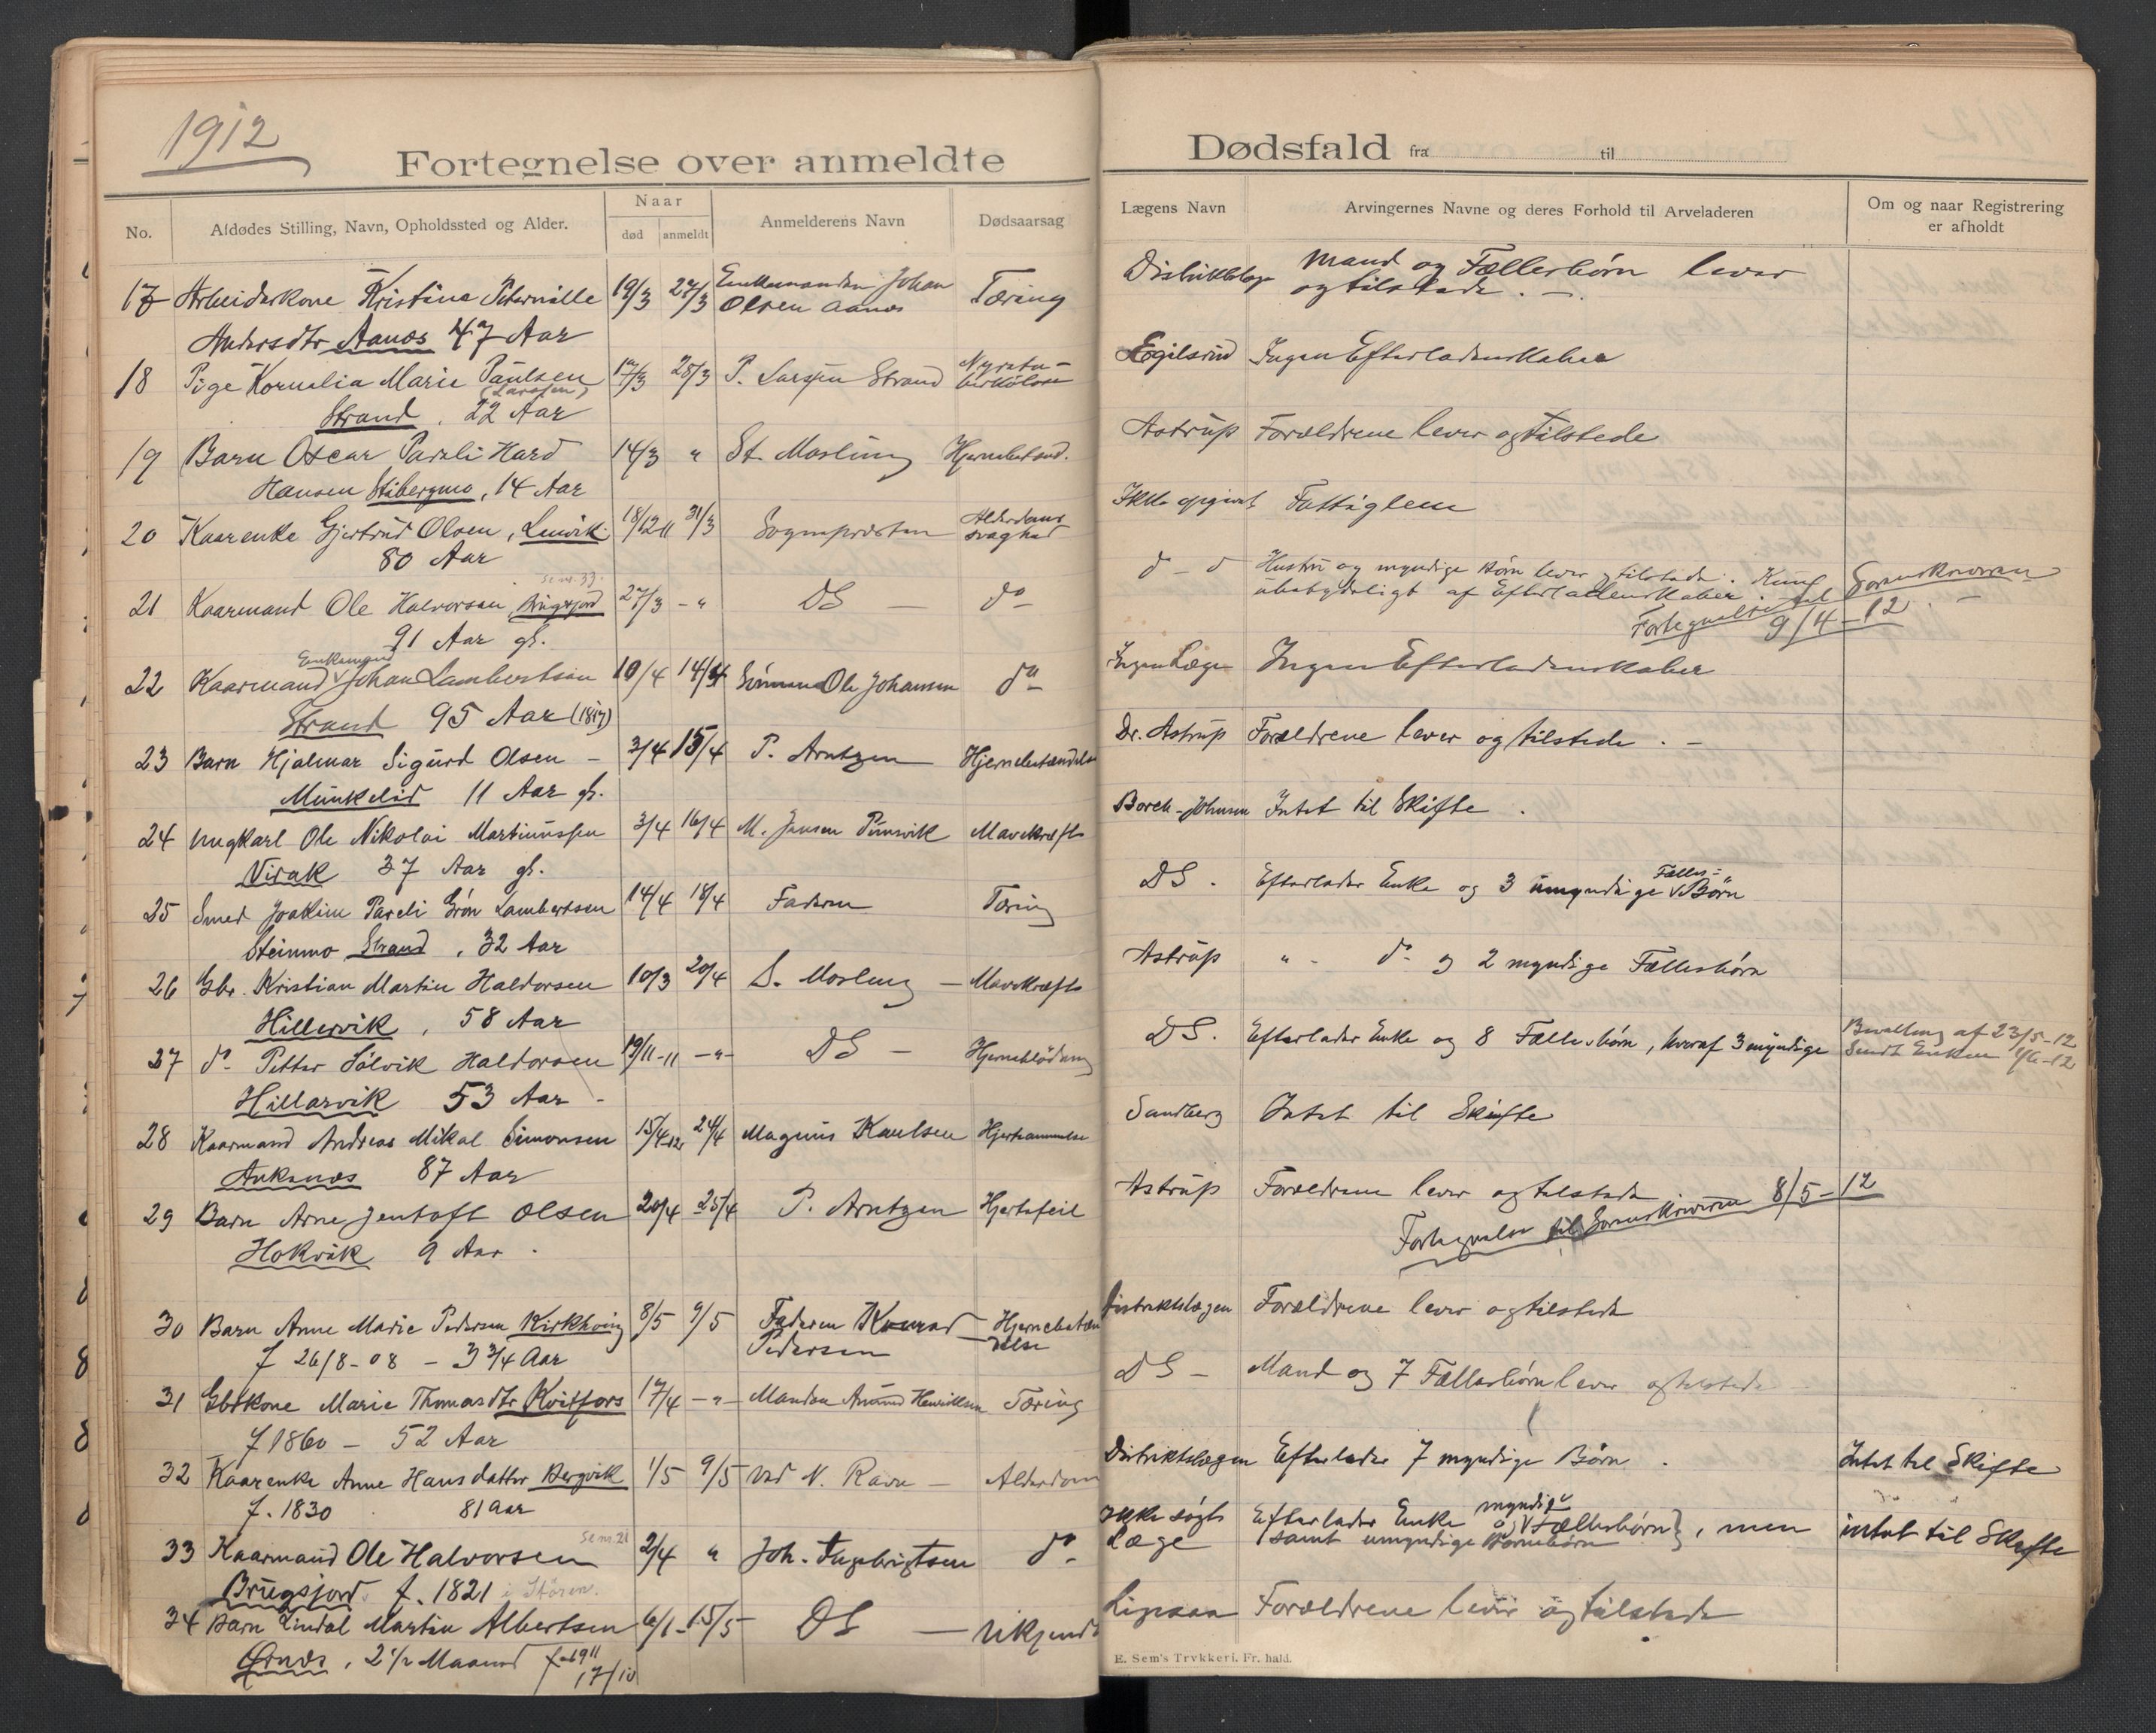 1912
Fortegnelse over anmeldte
No.
Afdødes Stilling, Navn, Opholdssted og Alder.
Naar
død
anmeldt
Anmelderens Navn
Dødsaarsag
17 Arbeiderkone Kristine Peternille 19/3 27/3 Enkemanden Johan Olsen Aanes Tæring
Andersdtr Aanæs 47 Aar
18 Pige Kornelia Marie Paulsen 17/3 28/3 P. Larsen Strand
(Larssen)
Strand . 22 Aar
19 Barn Oscar Pareli Hard 14/3 " St. Mosling Hjernebetænd.
Hansen Stibergmo, 14 Aar
20 Kaarenke Gjertrud Olsen, Lenvik 18/12 11 31/3 Sognepresten Alderdoms svaghed
80 Aar
se nr. 33.
21 Kaarmand Ole Halvorsen, Brugsjord 27/3 - " DS do -
91 Aar gl.
Enkemand
22 Kaarmand Johan Lambertsen 10/4 14/4 Sønnen Ole Johansen do -
Strand 95 Aar (1817)
23 Barn Hjalmar Sigurd Olsen - 3/4 15/4 P. Arntzen Hjernebetændelse
Munkelid 11 Aar gl.
24 Ungkarl Ole Nikolai Martinussen 3/4 16/4 M. Jensen Pünsvik Mavekræft
Virak 37 Aar gl.
25 Smed Joakim Pareli Grøn Lambertsen 14/4 18/4 Faderen Tæring
Steinmo Strand . 32 Aar
26 Gbr. Kristian Martin Haldorsen 10/3 20/4 S. Mosling - Mavekræft
Hillervik , 58 Aar
27 do Petter Sølvik Haldorsen 19/11-11 - " - DS - Hjerneblødning
Hillarvik 53 Aar -
28 Kaarmand Andreas Mikal Simonsen 15/4 12 24/4 Magnus Kaulsen
Ankenæs 87 Aar
29 Barn Arne Jentoft Olsen 20/4 25/4 P. Arntzen Hjertefeil
Hokvik 9 Aar .
30 Barn Anne Marie Pedersen Kirkhaug 8/5 9/5 Faderen Konrad Pedersen Hjernebetændelse
f 26/8-08 - 3 3/4 Aar
31 Gbkone Marie Thomasdtr Kvitfors 17/4 - " - Manden Amund Henriksen Tæring
f 1860 - 52 Aar
32 Kaarenke Anne Hansdatter Bergvik 1/5 9/5 ved N. Ravn - Alderdom
f. 1830 81 Aar
se nr. 21
33 Kaarmand Ole Halvorsen 2/4 " Joh. Ingebrigtsen do -
Brugsjord f. 1821 i Støren.
34 Barn Lindal Martin Albertsen 6/1 - 15/5 - DS - Ukjendt
Ørnes , 2 1/2 Maaned f. 1911
17/10
Dødsfald fra til
Lægens Navn
Arvingernes Navne og deres Forhold til Arveladeren
Om og naar Registrering
er afholdt
Distriktslæge Mand og Fællesbørn lever
og tilstede . -
Egilsrud Ingen Efterladenskaber
Astrup Forældrene lever og tilstede
Ikke opgivet Fattiglem
d - d Hustru og myndige Børn lever og tilstede. Kun
ubetydeligt af Efterladenskaber.
Fortegnelse til Sorenskriveren
9/4-12 . -
Ingen Læge Ingen Efterladenskaber
Dr. Astrup Forældrene lever og tilstede . -
Borch-Johnsen Intet til Skifte .
DS . Efterlader Enke og 3 umyndige Fælles- Børn
Astrup " - do - og 2 myndige Fællesbørn
DS. Efterlader Enke og 8 Fællesbørn, hvoraf 3 myndige Bevilling af 23/5-12
Sendt Enken 1/6-12
Sandberg Intet til Skifte
Astrup Forældrene lever og tilstede
Fortegnelse til Sorenskriveren 8/5-12
Distriktslægen Forældrene lever og tilstede
DS - Mand og 7 Fællesbørn lever og tilstede
Distriktslægen Efterlader 7 myndige Børn . Intet til Skifte
Ikke søgt Efterlader Enke og myndige Fællesbørn , men intet til Skifte
Læge samt umyndige Børnebørn
Forældrene lever og tilstede
E. Sem's Trykkeri. Fr. hald.